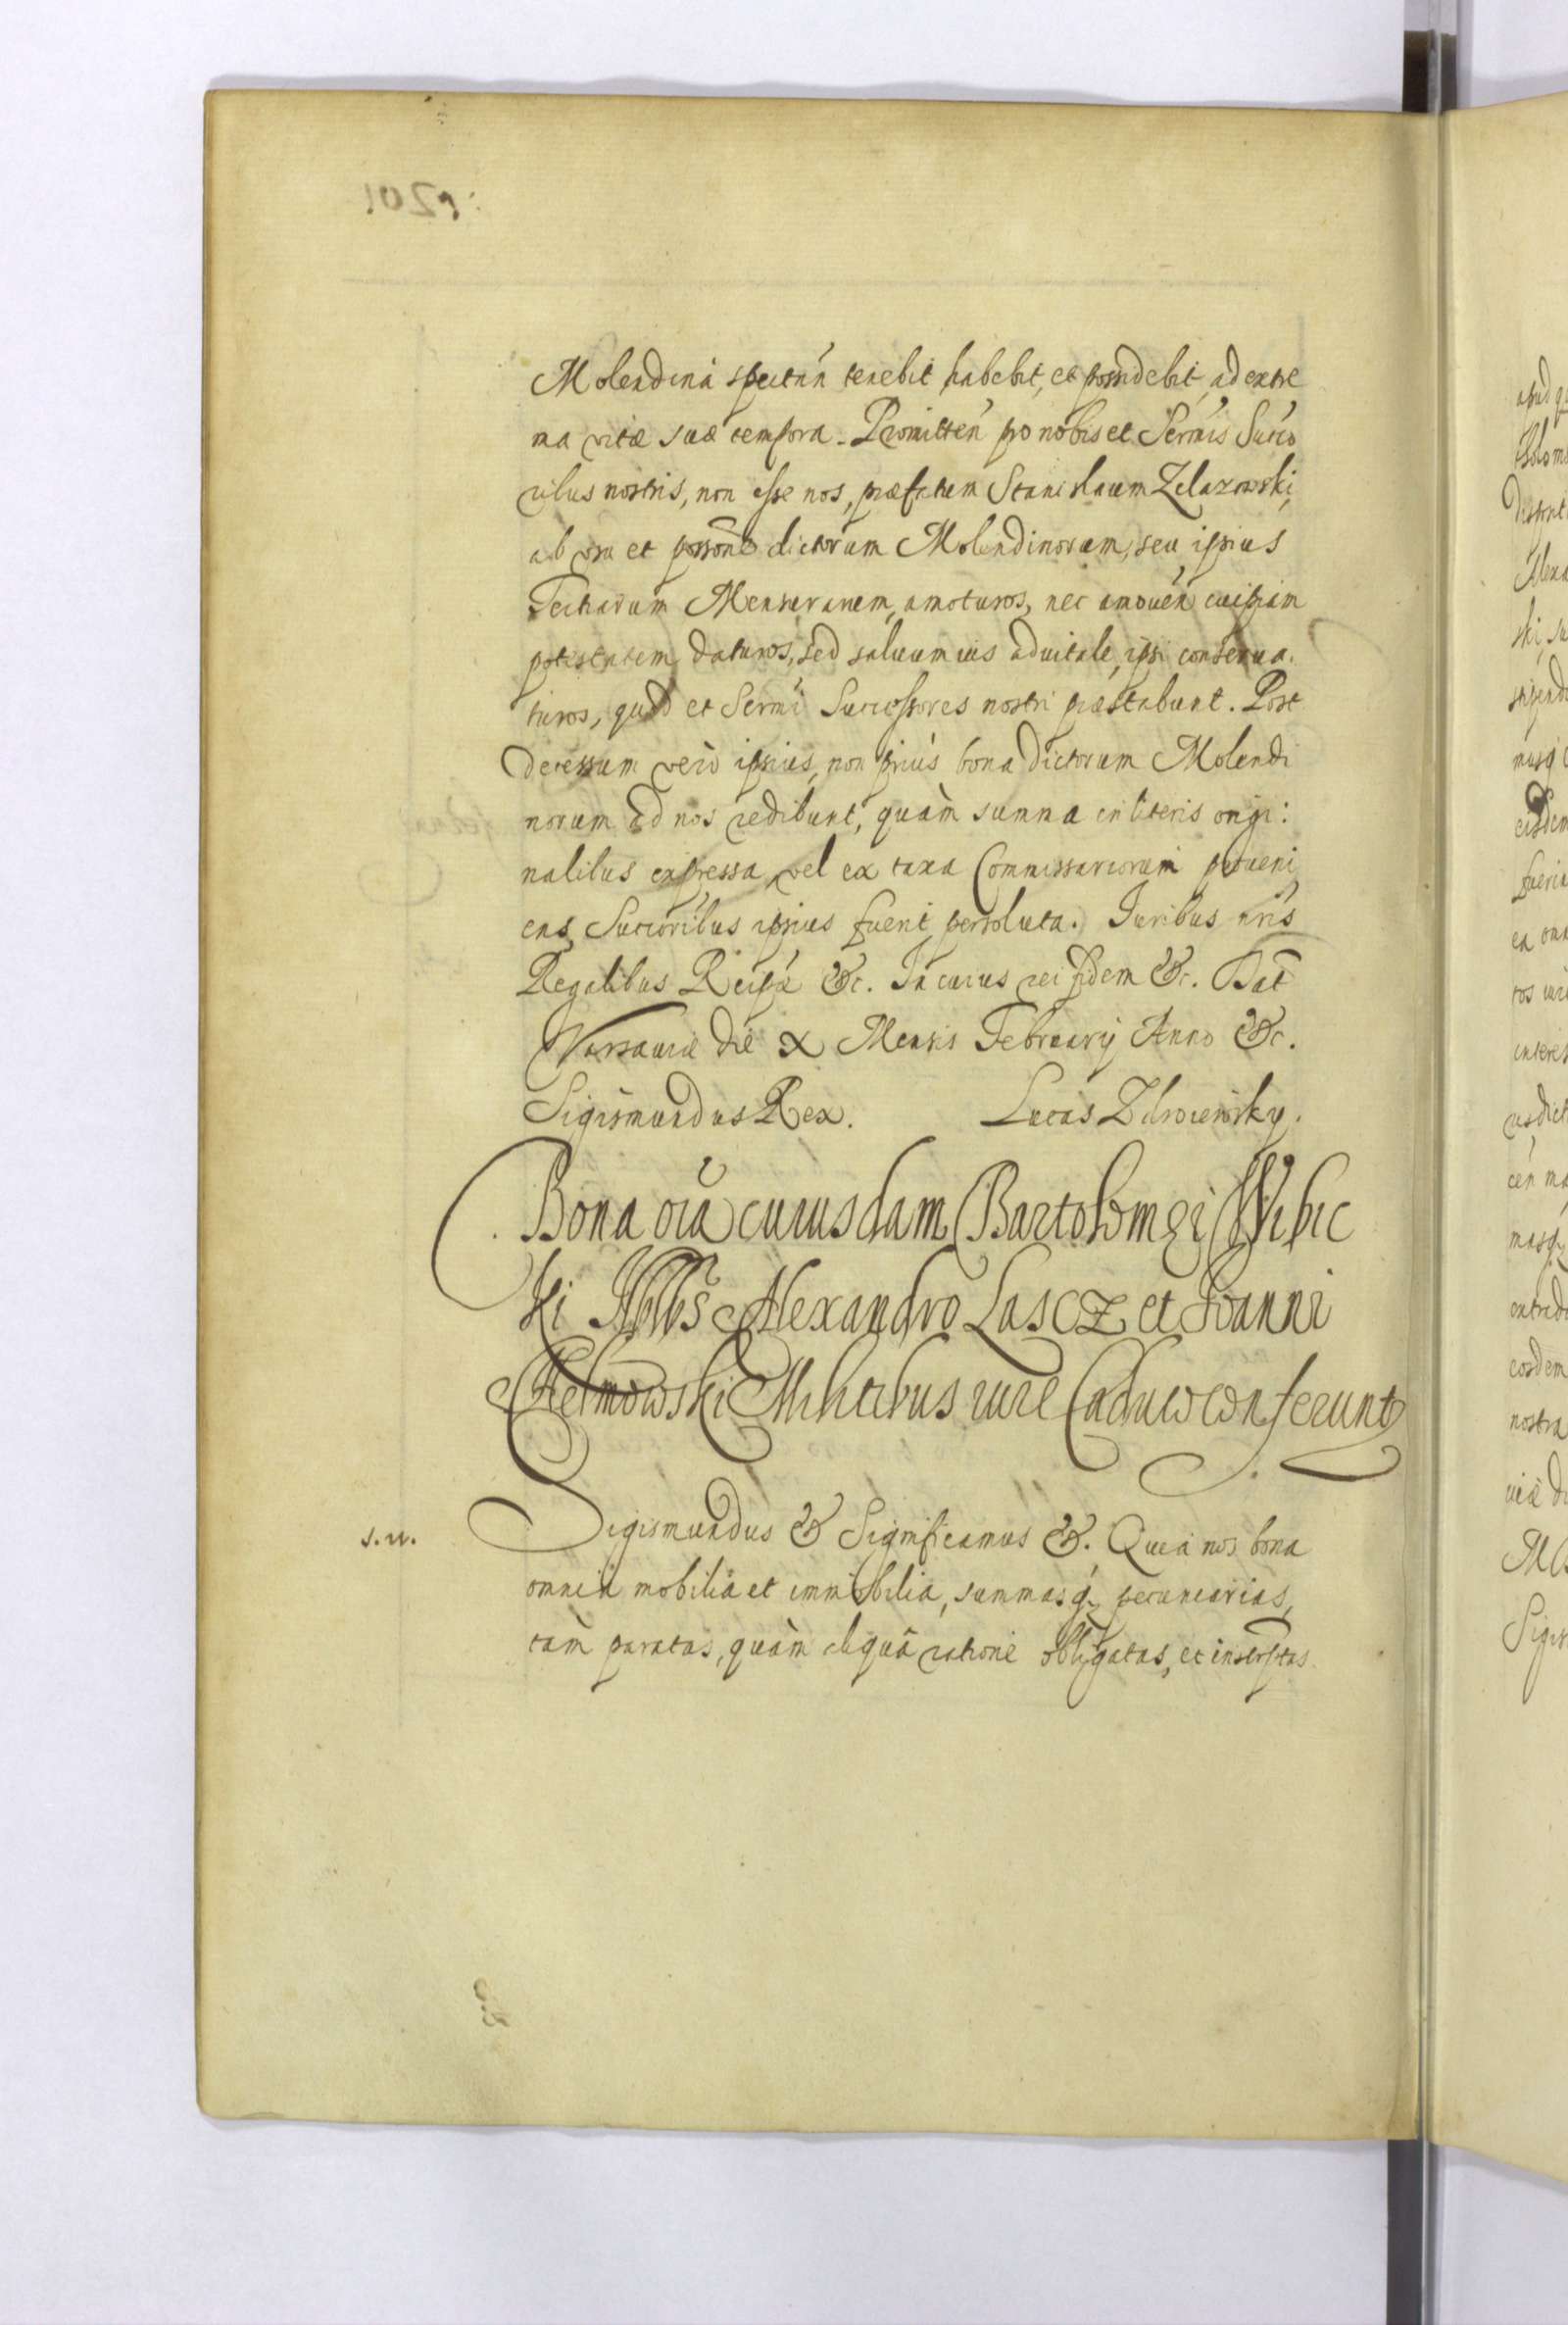 Molendina spectań tenebit habebit, et possidebit, ad extre
ma vitæ suæ tempora. Promitteń pro nobis et Sermis Succo
ribus nostris, non esse nos, præfatum Stanislaum Zelazowski,
ab usu et possone dictorum Molendinorum, seu ipsius
Tertiarum Mensurarum, amoturos, nec amoueń cuipiam
potestatem daturos, sed saluum ius aduitale, ipsi conserua.
turos, quod et Sermi Successores nostri præstabunt. Post
decessum verò ipsius, non priùs bona dictorum Molendi
norum ad nos redibunt, quàm summa in literis origi:
nalibus expressa, vel ex taxa Commissariorum proueni
ens, Succoribus ipsius fuerit persoluta. Juribus nris
Regalibus Reipæ &c. In cuius rei fidem &c. Dat
Varsauiæ die X Mensis February Anno &c.
Sigismundus Rex. Lucas
Bona oia cuiusdam Bartolomei Wibic
ki Nobbs Alexandro Lascz et Joanni
Chelmowski Militibus iure Caduco conferunt
s. n.
Sigismundus & Significamus &. Quia nos bona
omnia mobilia et immobilia, summasq; pecuniarias,
tàm paratas, quàm aliquâ ratione obligatas, et inscriptas